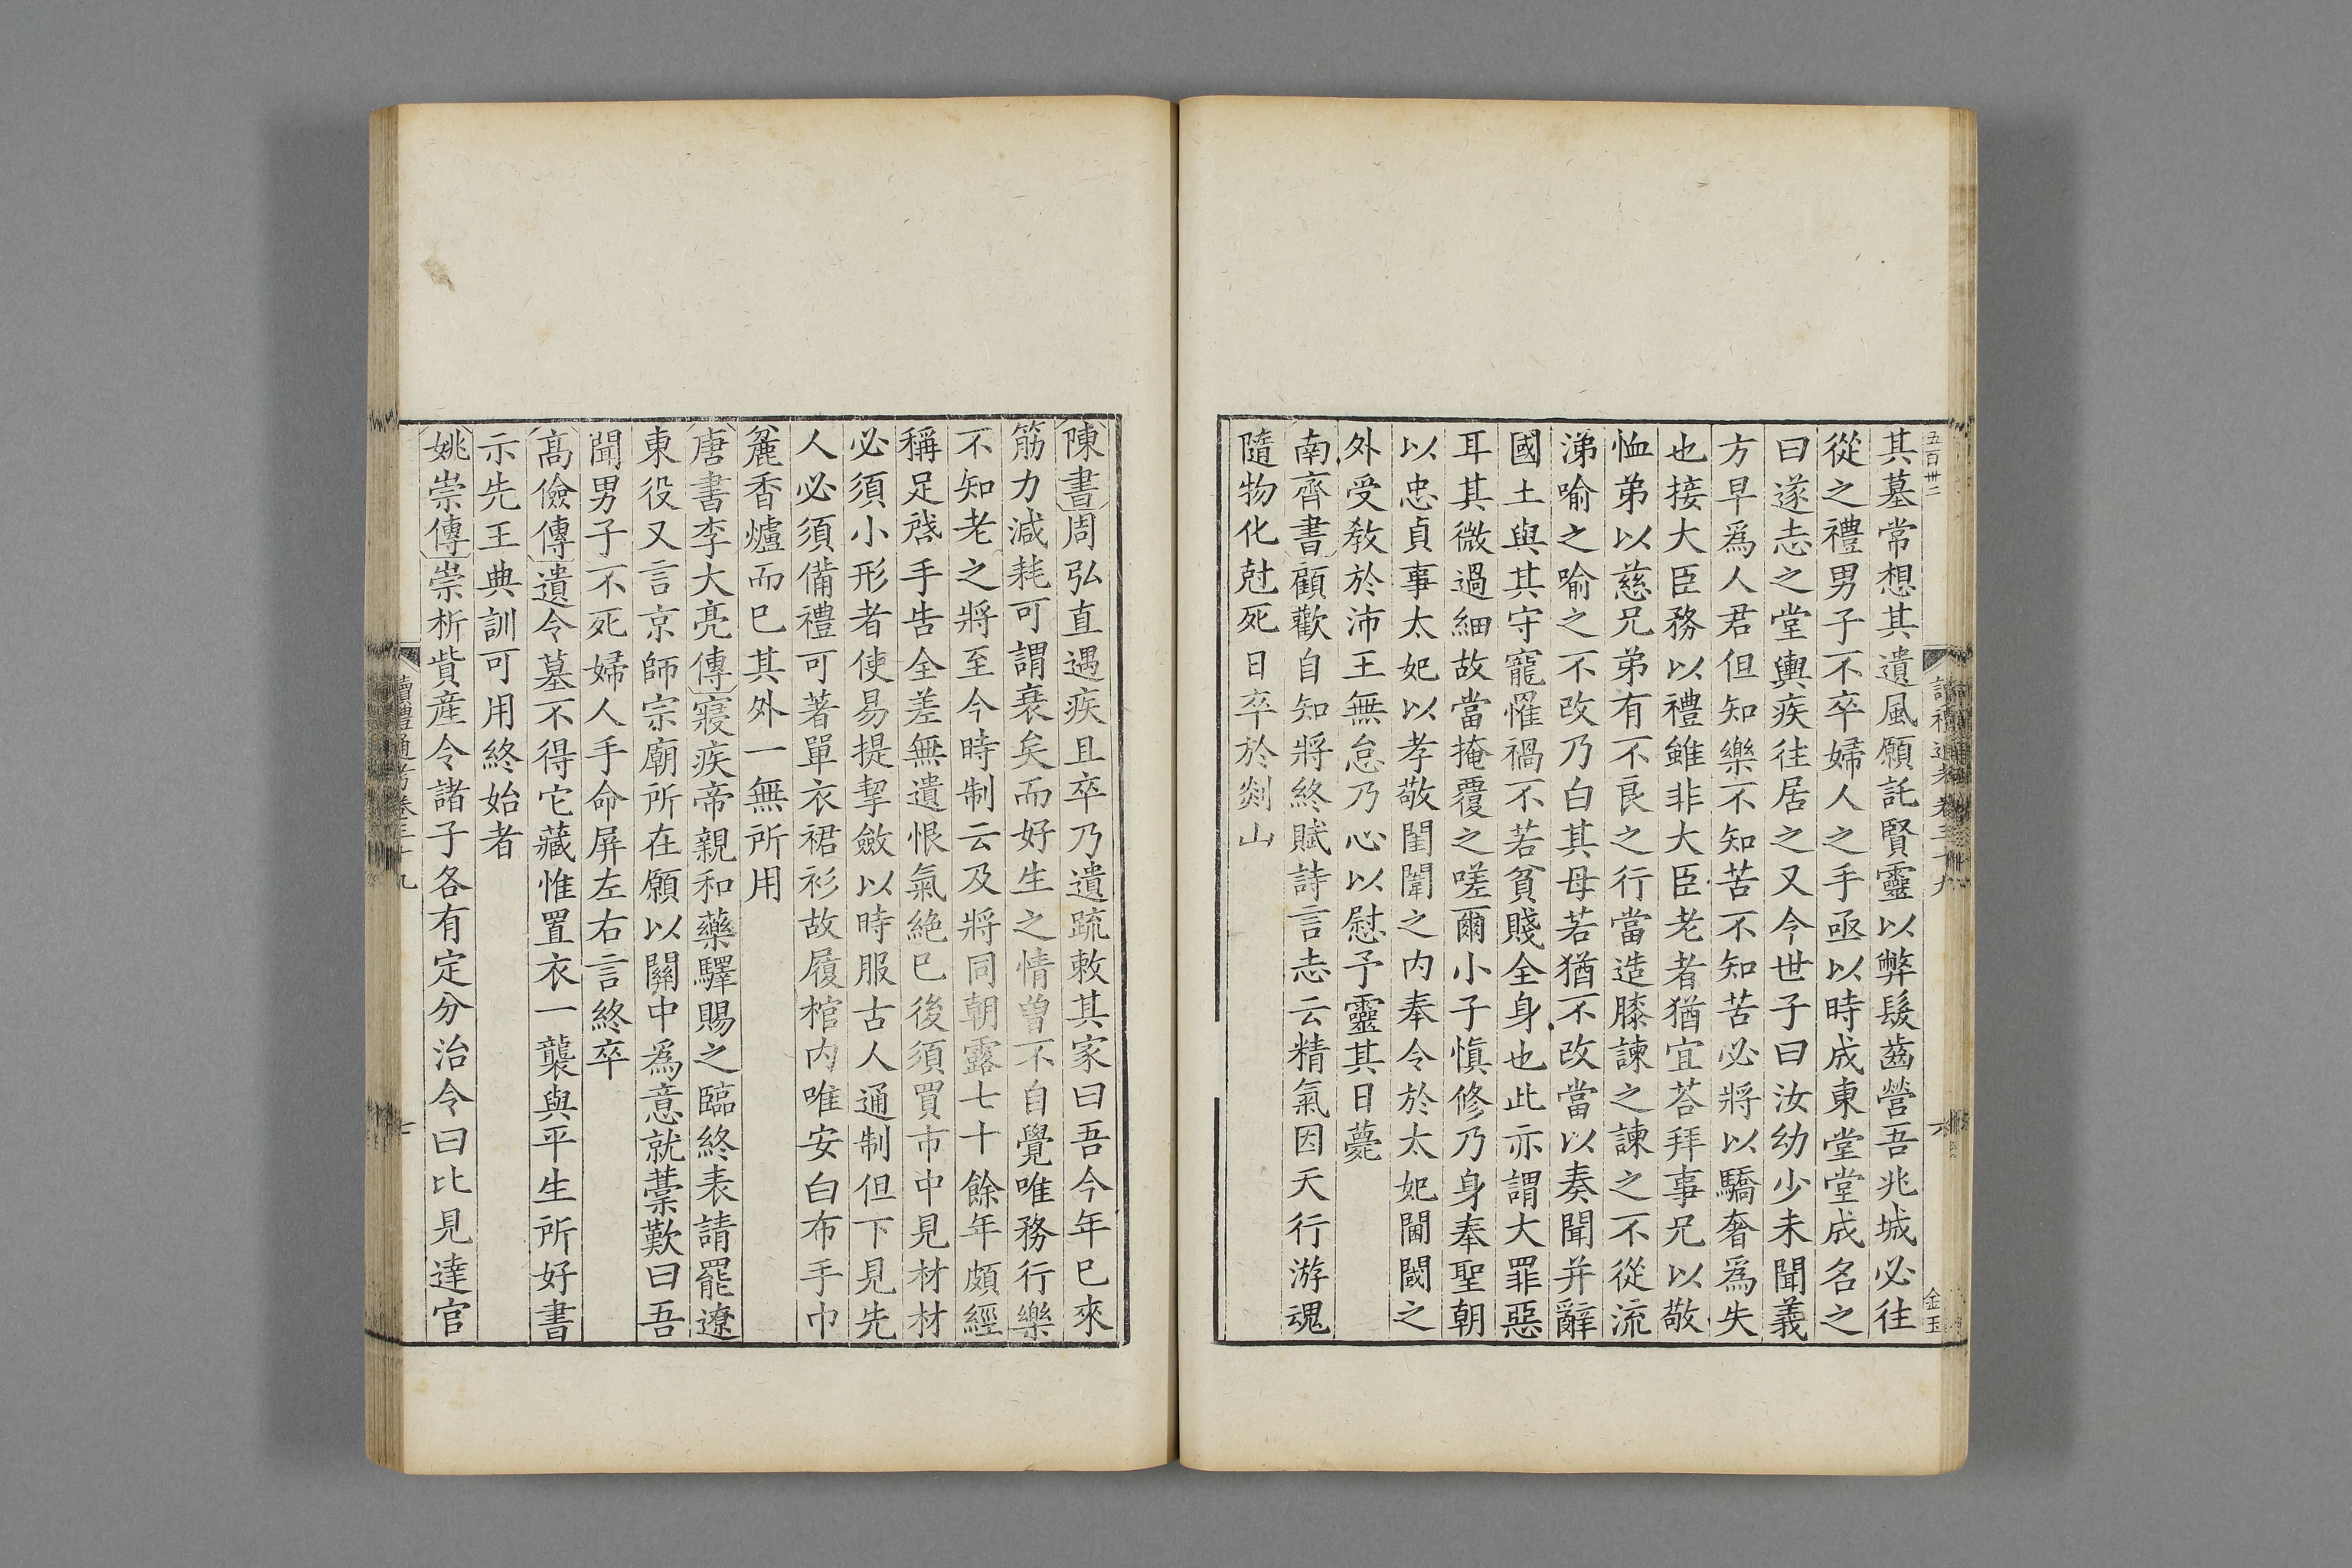 五百卅二
其墓常想其遺風願託賢靈以弊髮齒營吾兆城必往
從之禮男子不卒婦人之手亟以時成東堂堂成名之
曰遂志之堂輿疾往居之又今世子曰汝幼少未聞義
方早爲人君但知樂不知苦不知苦必將以驕奢爲失
也接大臣務以禮雖非大臣老者猶宜荅拜事兄以敬
恤弟以慈兄弟有不良之行當造膝諫之諫之不從流
涕喻之喻之不改乃白其母若猶不改當以奏聞并辭
國土與其守寵罹禍不若貧賤全身也此亦謂大罪惡
耳其微過細故當掩覆之嗟爾小子愼修乃身奉聖朝
以忠貞事太妃以孝敬閨闈之内奉令於太妃閫閾之
外受敎於沛王無怠乃心以慰予靈其日薨
南齊書顧歡自知將終賦詩言志云精氣因天行游魂
隨物化尅死日卒於剡山
讀禮通考卷三十九
六
金玉
陳書周弘直遇疾且卒乃遺疏敕其家曰吾今年已來
筋力減耗可謂衰矣而好生之情曾不自覺唯務行樂
不知老之將至今時制云及將同朝露七十餘年頗經
稱足啓手告全差無遺恨氣絶已後須買市中見材材
必須小形者使易提挈斂以時服古人通制但下見先
人必須備禮可著單衣裙衫故履棺内唯安白布手巾
麄香爐而已其外一無所用
唐書李大亮傳寢疾帝親和藥驛賜之臨終表請罷遼
東役又言京師宗廟所在願以關中爲意就藁歎曰吾
聞男子不死婦人手命屏左右言終卒
高儉傳遺令墓不得它藏惟置衣一襲與平生所好書
示先王典訓可用終始者
姚崇傳崇析貲產令諸子各有定分治令曰比見達官
讀禮通考卷三十九
七